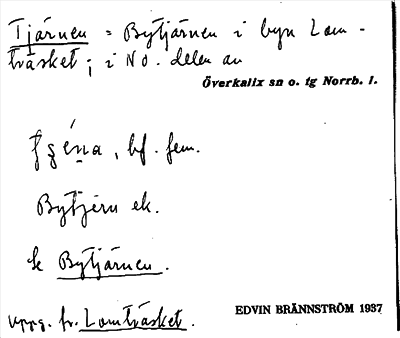 Tjärnen = Bytjärnen i byn Lom-
träsket; i NO. delen av
Överkalix sn o. tg Norrb. l.
bf. fem.
Bytjern ek.
se Bytjärnen.
uppg. fr. Lomträsket.
EDVIN BRÄNNSTRÖM 1937